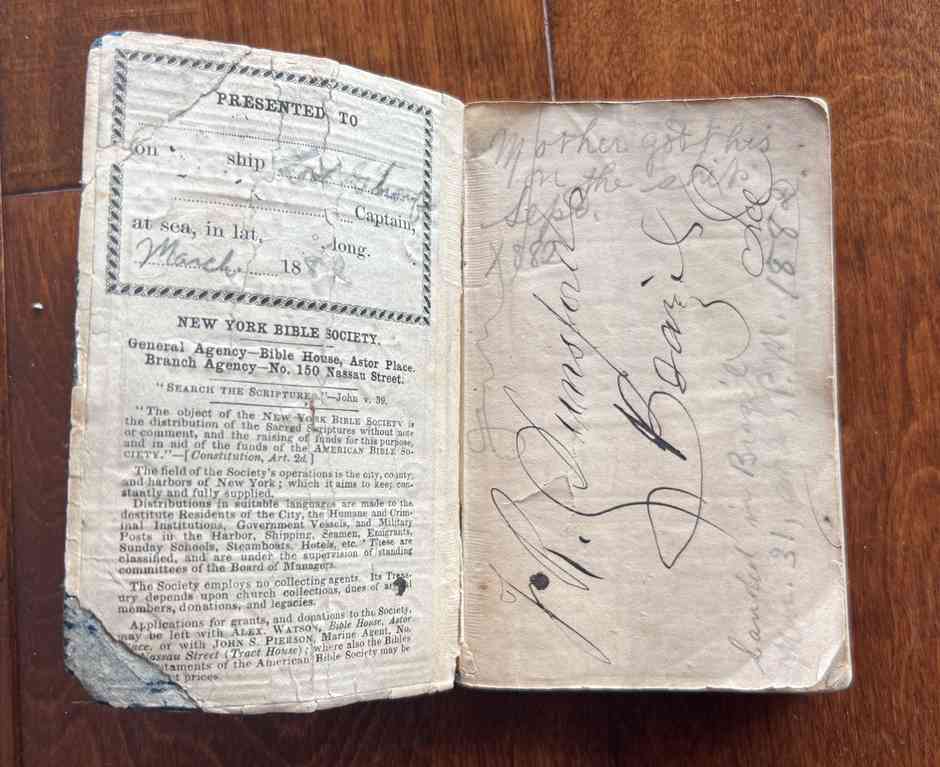 PRESENTED TO
on ship
Captain,
at sea, in lat, long.
March 1882
NEW YORK BIBLE SOCIETY.
General Agency—Bible House, Astor Place.
Branch Agency—No. 150 Nassau Street.
"SEARCH THE SCRIPTURES."—John v. 39.
"The object of the NEW YORK BIBLE SOCIETY is
the distribution of the Sacred Scriptures without note
or comment, and the raising of funds for this purpose,
and in aid of the funds of the AMERICAN BIBLE SO-
CIETY."—[Constitution, Art. 2d.]
The field of the Society's operations is the city, county
and harbors of New York; which it aims to keep con-
stantly and fully supplied.
Distributions in suitable languages are made to the
destitute Residents of the City, the Humane and Crim-
inal Institutions, Government Vessels, and Military
Posts in the Harbor, Shipping, Seamen, Emigrants,
Sunday Schools, Steamboats, Hotels, etc. These are
classified, and are under the supervision of standing
committees of the Board of Managers.
The Society employs no collecting agents. Its Treas-
ury depends upon church collections, dues of annual
members, donations, and legacies.
Applications for grants, and donations to the Society,
may be left with ALEX. WATSON, Bible House, Astor
Place, or with JOHN S. PIERSON, Marine Agent, No.
Nassau Street (Tract House); where also the Bibles
taments of the American Bible Society may be
t prices.
Mother got this
on the ship
Sept.
1882